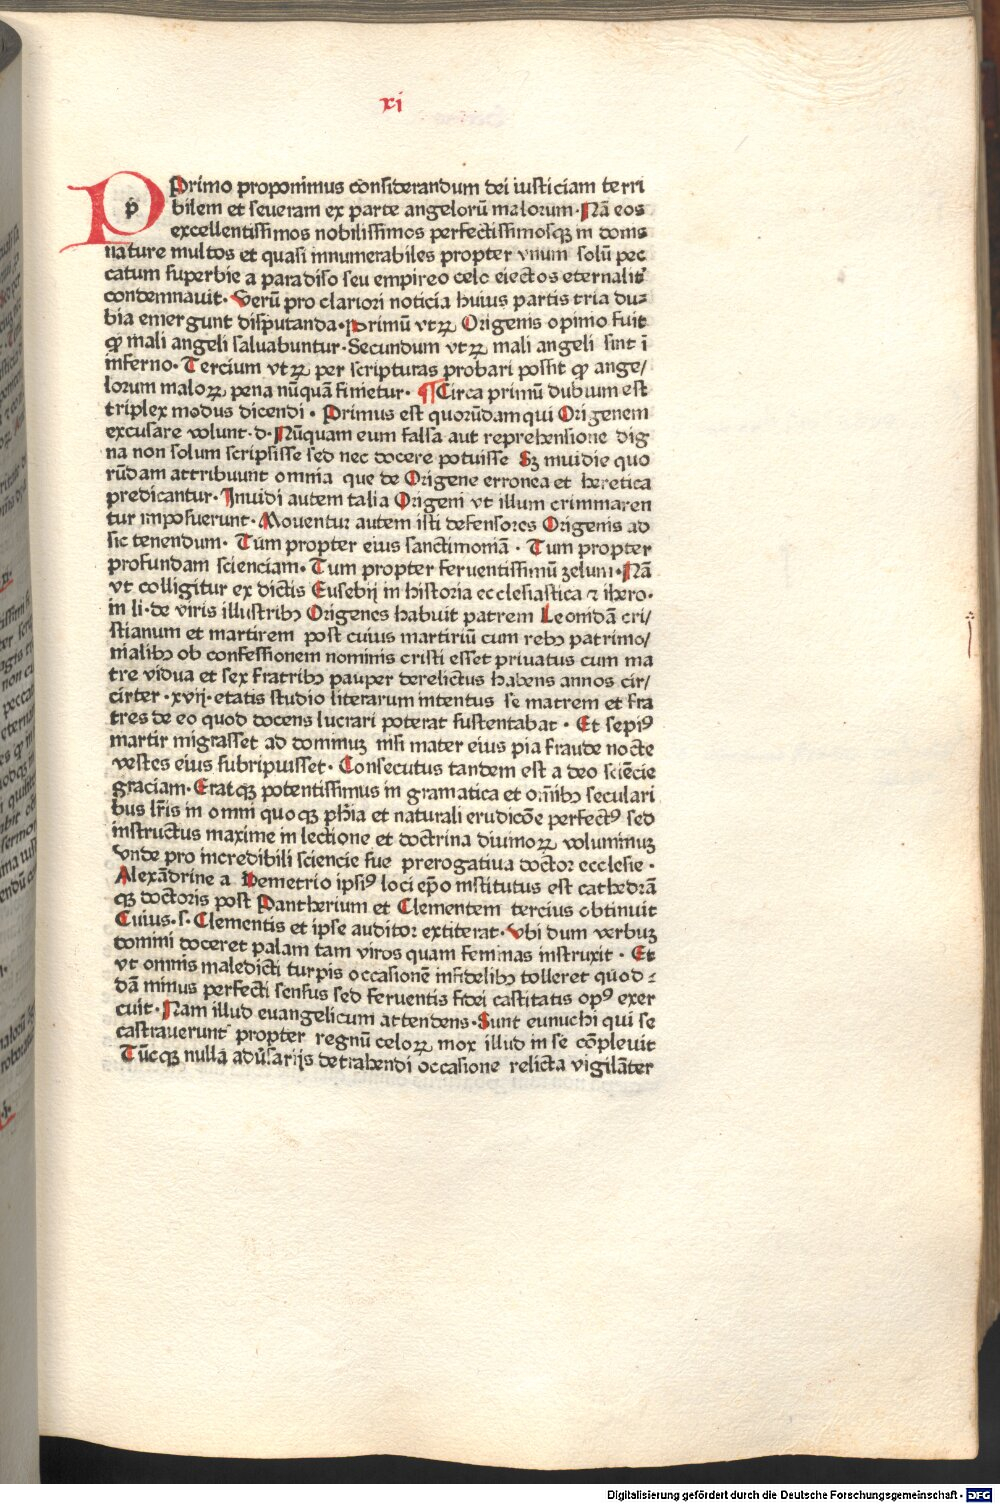 xi
PPrimo proponimus considerandum dei iusticiam terri
bilem et seueram ex parte angelorū malorum· Nā eos
excellentissimos nobilissimos perfectissimosqꝫ in donis
nature multos et quasi innumerabiles propter vnum solū pec
catum superbie a paradiso seu empireo celo eiectos eternalit̄
condemnauit· Verū pro clariori noticia huius partis tria du⸗
bia emergunt disputanda· primū vtꝝ Origenis opinio fuit
ꝙ mali angeli saluabuntur· Secundum vtꝝ mali angeli sint ī
inferno· Tercium vtꝝ per scripturas probari possit ꝙ ange/
lorum maloꝝ pena nūquā finietur· ¶Circa primū dubium est
triplex modus dicendi· Primus est quorūdam qui Origenem
excusare volunt·d· Nūquam eum falsa aut reprehensione dig
na non solum scripsisse sed nec docere potuisse Sꝫ inuidie quo
rūdam attribuunt omnia que de Origene erronea et heretica
predicantur· Inuidi autem talia Origeni vt illum criminaren
tur imposuerunt· Mouentur autem isti defensores Origenis ad
sic tenendum· Tum propter eius sanctimoniā· Tum propter
profundam scienciam· Tum propter feruentissimū zelum· Nā
vt colligitur ex dictis Eusebij in historia ecclesiastica ⁊ ihero·
in li·de viris illustribꝫ Origenes habuit patrem Leonidā cri/
stianum et martirem post cuius martiriū cum rebꝫ patrimo/
nialibꝫ ob confessionem nominis cristi esset priuatus cum ma
tre vidua et sex fratribꝫ pauper derelictus habens annos cir/
citer ·xvij· etatis studio literarum intentus se matrem et fra
tres de eo quod docens lucrari poterat sustentabat· Et sepiꝰ
martir migrasset ad dominuꝫ nisi mater eius pia fraude nocte
vestes eius subripuisset· Consecutus tandem est a deo sciēcie
graciam· Eratqꝫ potentissimus in gramatica et om̄ibꝫ seculari
bus lr̄is in omni quoqꝫ ph̄ia et naturali erudicōe perfectꝰ sed
instructus maxime in lectione et doctrina diuinoꝝ voluminuꝫ
Vnde pro incredibili sciencie sue prerogatiua doctor ecclesie·
Alexādrine a Demetrio ipsiꝰ loci ep̄o institutus est cathedrā
qꝫ doctoris post Pantherium et Clementem tercius obtinuit
Cuius·s· Clementis et ipse auditor extiterat· Vbi dum verbuꝫ
domini doceret palam tam viros quam feminas instruxit· Et
vt omnis maledicti turpis occasionē infidelibꝫ tolleret quod⸗
dā minus perfecti sensus sed feruentis fidei castitatis opꝰ exer
cuit· Nam illud euangelicum attendens· Sunt eunuchi qui se
castrauerunt propter regnū celoꝝ mox illud in se cōpleuit
Tūcqꝫ nullā adūsarijs detrahendi occasione relicta vigilāter
Digitalisierung gefördert durch die Deutsche Forschungsgemeinschaft - DFG